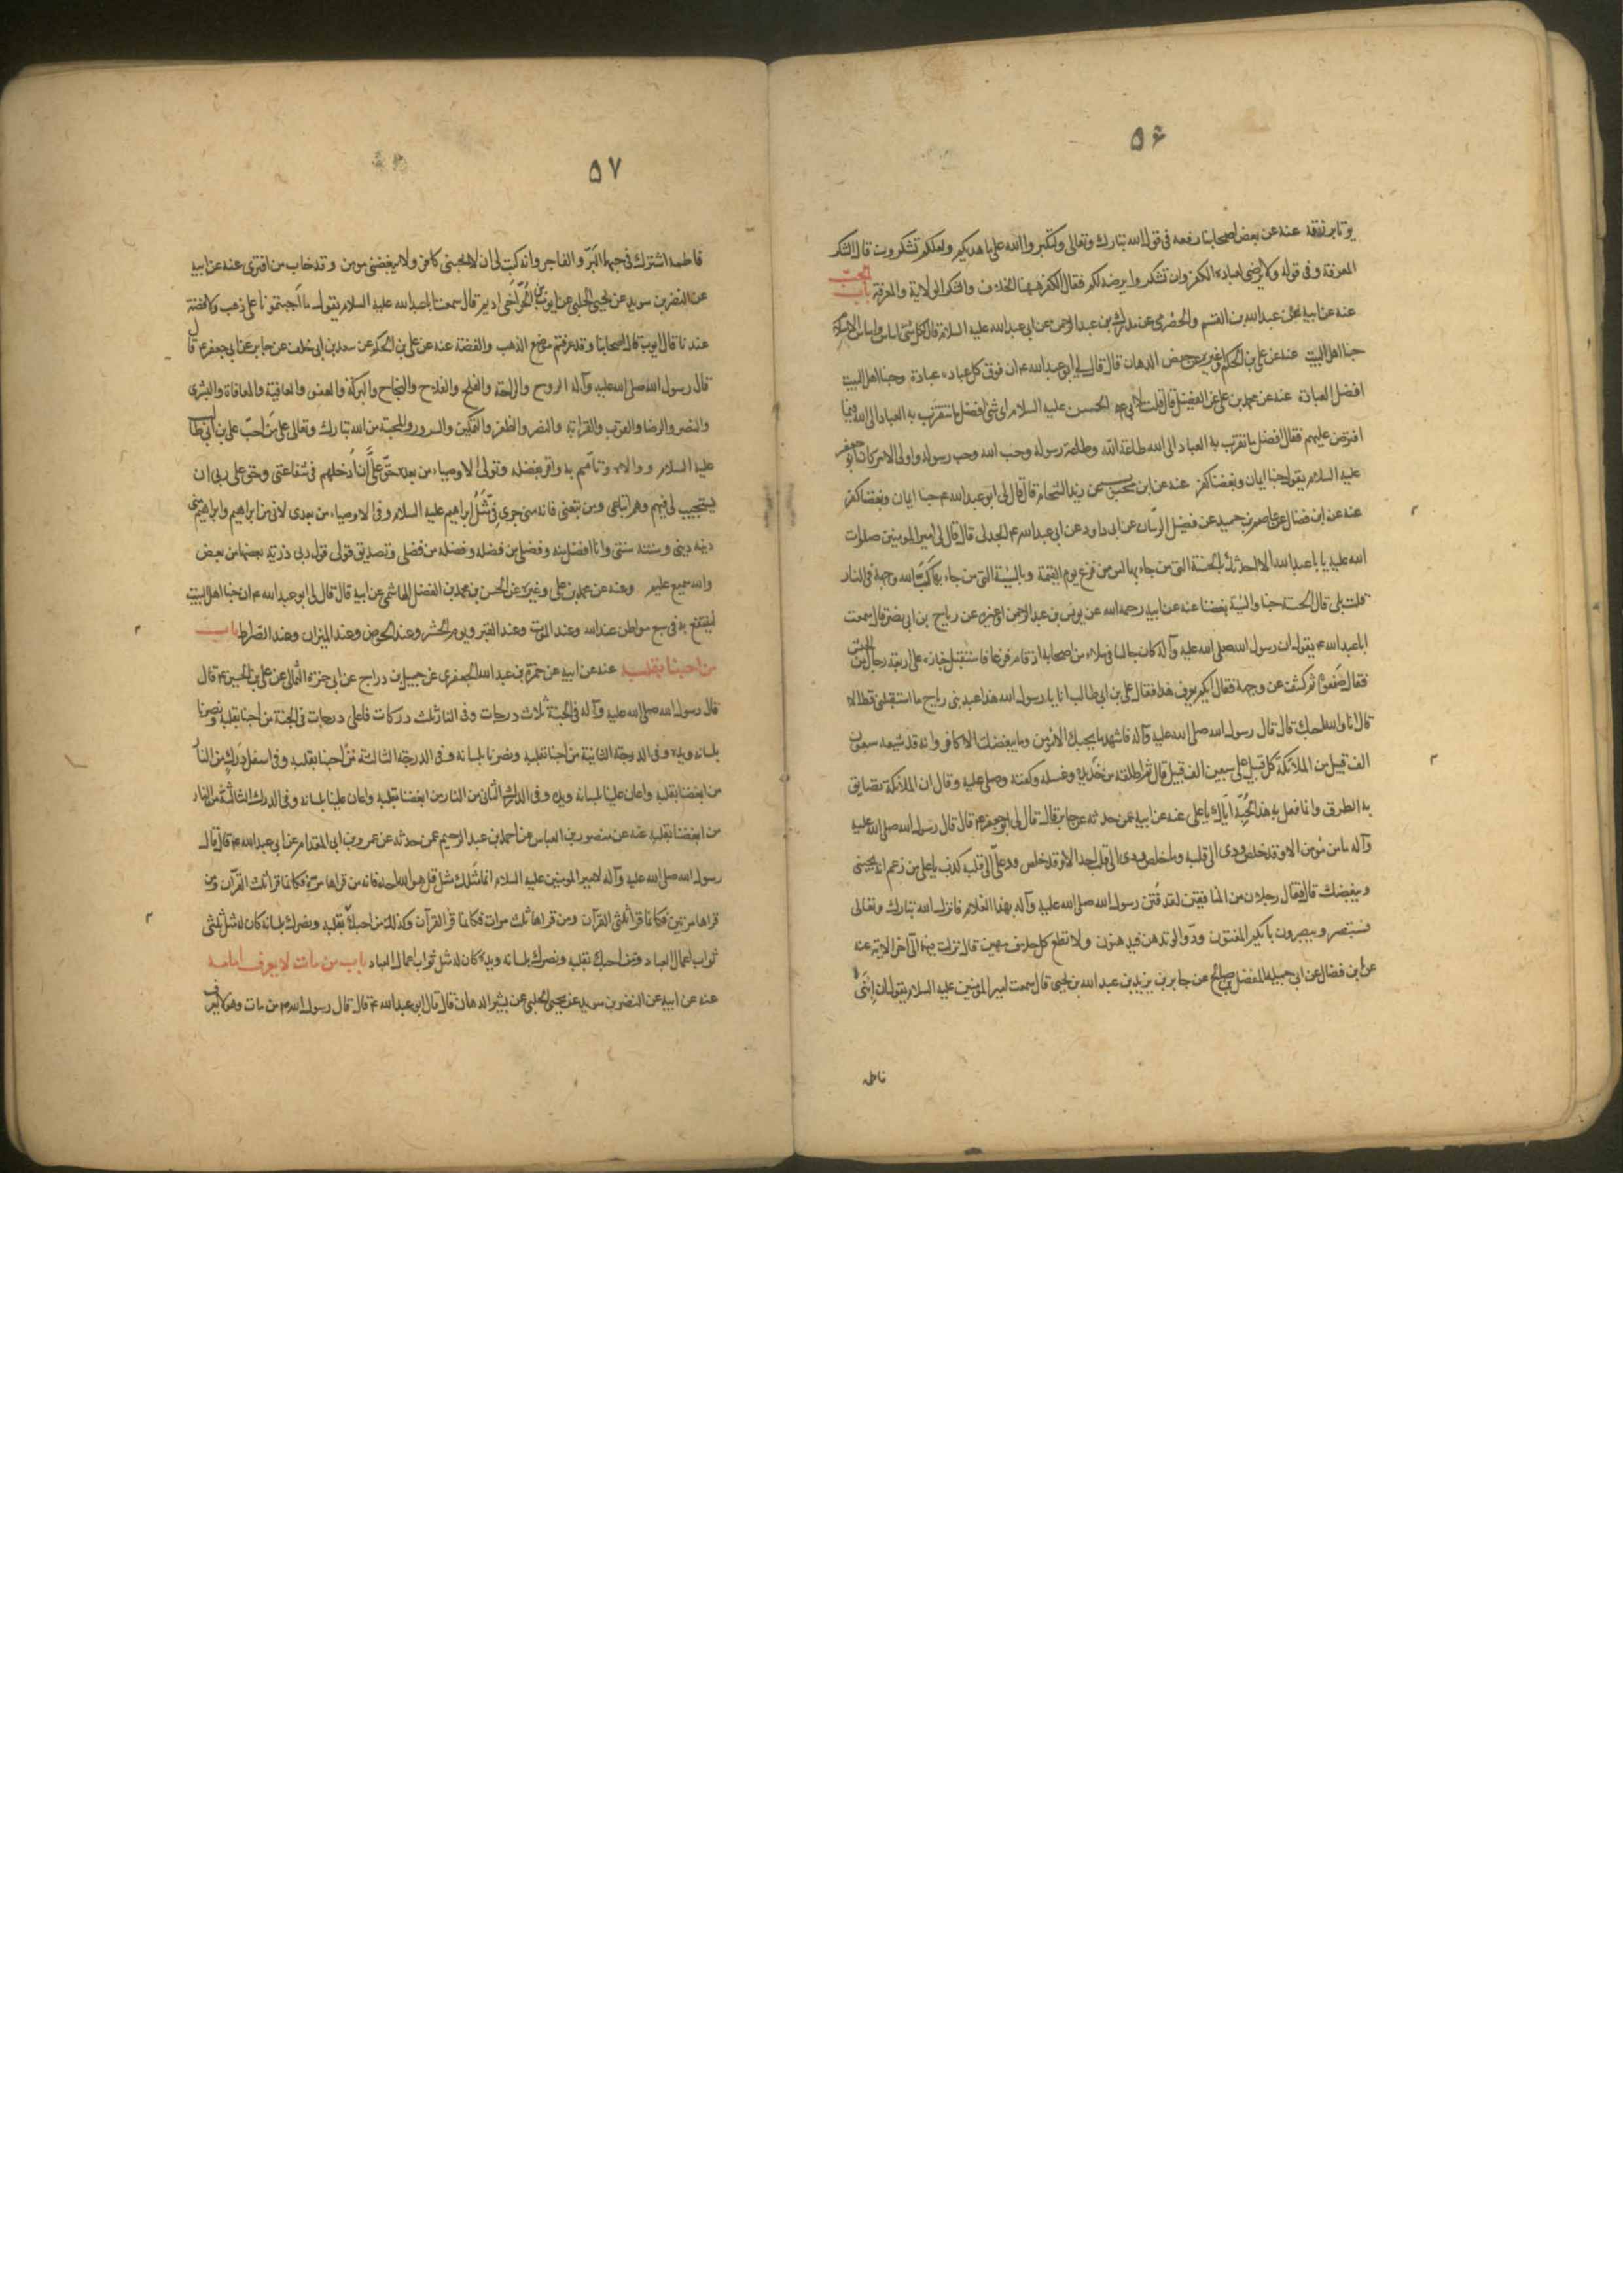 ۵۶
عنه عن بعض اصحابنا رفعه فى قول الله تبارك وتعالى ولتكبروا الله على ما هديكم ولعلكم تشكرون قال الشكر
المعرفة وفى قوله ولا يرضى لعباده الكفر وان تشكروا يرضه لكم فقال الكفر ههنا الخلاف والشكر الولاية والمعرفة باب الحب
عنه عن ابيه عبدالله بن القسم والحضرمى عن مدرك بن عبدالرحمن عن ابى عبدالله عليه السلام قال لكل شئ اساس واساس الاسلام
حبنا اهل البيت عنه عن على بن الحكم او غيره عن حفص الدهان قال قال لى ابو عبدالله ع ان فوق كل عبادة عبادة وحبنا اهل البيت
افضل العبادة عنه عن محمد بن على عن الفضيل قال قلت لابى الحسن عليه السلام اى شئ افضل ما يتقرب به العباد الى الله فيما
افترض عليهم فقال افضل ما تقرب به العباد الى الله طاعة الله وطاعة رسوله وحب الله وحب رسوله واولى الامر كان ابو جعفر
عليه السلام يقول حبنا ايمان وبغضنا كفر عنه عن ابن محبوب عن زيد الشحام قال قال لى ابو عبدالله ع حبنا ايمان وبغضنا كفر
عنه عن ابن فضال عن عاصم بن حميد عن فضيل الرسان عن ابى داود عن ابى عبدالله الجدلى قال قال لى امير المومنين صلوات
الله عليه يا با عبدالله الا احدثك بالحسنة التى من جاء بها امن من فزع يوم القيمة وبالسيئة التى من جاء بها اكب الله وجهه فى النار
قلت بلى قال الحسنة حبنا والسيئة بغضنا عنه عن ابيه رحمه الله عن يونس بن عبدالرحمن او غيره عن رياح بن ابى نصر قال سمعت
ابا عبدالله ع يقول ان رسول الله صلى الله عليه وآله كان جالسا فى ملاء من اصحابه اذ قام فزعا فاستقبل جنازة على اربعة رجال من الحبش
فقال ضعوه ثم كشف عن وجهه فقال ايكم يعرف هذا فقال على بن ابى طالب انا يا رسول الله هذا عبد بنى رياح ما استقبلنى قط الا
قال انا والله احبك قال قال رسول الله صلى الله عليه وآله فاشهد ما يحبك الا مومن وما يبغضك الا كافر وانه قد شيعه سبعون
الف قبيل من الملائكة كل قبيل على سبعين الف قبيل قال ثم اطلقه من حديده وغسله وكفنه وصلى عليه وقال ان الملائكة تضايق
به الطريق وانما فعل به هذا لحبه اياك يا على عنه عن ابيه عمن حدثه عن جابر قال قال لى ابو جعفر ع قال قال رسول الله صلى الله عليه
وآله ما من مؤمن الا وقد خلص ودى الى قلبه وما خلص ودى الى قلب احد الا وقد خلص ود على الى قلبه كذب يا على من زعم انه يحبنى
ويبغضك قال فقال رجلان من المنافقين لقد فتن رسول الله صلى الله عليه وآله بهذا الغلام فانزل الله تبارك وتعالى
فستبصر ويبصرون بايكم المفتون ودوا لو تدهن فيدهنون ولا تطع كل حلاف مهين قال نزلت فيهما الى آخر الاية عنه
عن ابن فضال عن ابى جميلة المفضل بن صالح عن جابر بن يزيد بن عبدالله بن يحيى قال سمعت امير المومنين عليه السلام يقول ان ابنتى
فاطمه
۵۷
فاطمة اشترك فى حبها البر والفاجر وانه كتب لى ان لا يحبنى كافر ولا يبغضنى مومن وقد خاب من افترى عنه عن ابيه
عن النضر بن سويد عن يحيى الحلبى عن ايوب بن الحر اخى اديم قال سمعت ابا عبدالله عليه السلام يقول ما احببتمونا على ذهب ولا فضة
عندنا قال ايوب قال اصحابنا وقد عرفتم موضع الذهب والفضة عنه عن على بن الحكم عن سعد بن ابى خلف عن جابر عن ابى جعفر ع قال
قال رسول الله صلى الله عليه وآله الروح والراحة والفلج والفلاح والنجاح والبركة والعفو والعافية والمعافاة والبشرى
والنضر والرضا والقرب والقرابة والنصر والظفر والتمكين والسرور والمحبة من الله تبارك وتعالى على من احب على بن ابى طالب
عليه السلام ووالاه وتأتم به واقر بفضله وتولى الاوصياء من بعده حق على ان ادخلهم فى شفاعتى وحق على ربى ان
يستجيب لى فيهم وهم اتباعى ومن تبعنى فانه منى جرى فى مثل ابراهيم عليه السلام وفى الاوصياء من بعدى لانى من ابراهيم وابراهيم منى
دينه دينى وسنته سنتى وانا افضل منه وفضلى من فضله وفضله من فضلى وتصديق قولى قول ربى ذرية بعضها من بعض
والله سميع عليم وعنه عن محمد بن على وغيره عن الحسن بن محمد بن الفضل الهاشمى عن ابيه قال قال لى ابو عبدالله ع ان حبنا اهل البيت
لينتفع به فى سبع مواطن عند الله وعند الموت وعند القبر ويوم الحشر وعند الحوض وعند الميزان وعند الصراط باب
من احبنا بقلبه عنه عن ابيه عن حمزة بن عبدالله الجعفرى عن جميل بن دراج عن ابى حمزة الثمالى عن على بن الحسين ع قال
قال رسول الله صلى الله عليه وآله فى الجنة ثلاث درجات وفى النار ثلث دركات فاعلى درجات فى الجنة من احبنا بقلبه ونصرنا
بلسانه ويده وفى الدرجة الثانية من احبنا بقلبه ونصرنا بلسانه وفى الدرجة الثالثة من احبنا بقلبه وفى اسفل درك من النار
من ابغضنا بقلبه واعان علينا بلسانه ويده وفى الدرك الثانى من النار من ابغضنا بقلبه واعان علينا بلسانه وفى الدرك الثالثة من النار
من ابغضنا بقلبه عنه عن منصور بن العباس عن احمد بن عبدالرحيم عمن حدثه عن عمرو بن ابى المقدام عن ابى عبدالله ع قال قال
رسول الله صلى الله عليه وآله لامير المومنين عليه السلام انما مثلك مثل قل هو الله احد فانه من قراها مرة فكانما قرا ثلث القرآن ومن
قراها مرتين فكانما قرا ثلثى القرآن ومن قراها ثلث مرات فكانما قرأ القرآن وكذلك من احبك بقلبه ونصرك بلسانه كان له مثل ثلثى
ثواب اعمال العباد ومن احبك بقلبه ونصرك بلسانه ويده كان له مثل ثواب اعمال العباد باب من مات لا يعرف امامه
عنه عن ابيه عن النضر بن سويد عن يحيى الحلبى عن بشير الدهان قال قال ابو عبدالله ع قال قال رسول الله ص من مات وهو لا يعرف